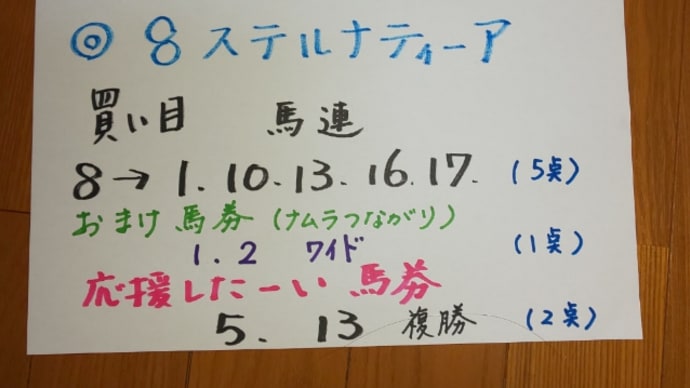 ◎ 8 ステルナティーア
買い目 馬連
8→1.10.13.16.17. (5点)
おまけ馬券(ナムラつながり)
1.2 ワイド (1点)
応援したーい馬券
5. 13 複勝 (2点)